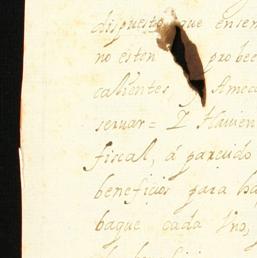 dispuesto que ensen
no esten probee
calientes, y Amec
seruar = Y Hauien
fiscal, á parecido
beneficios para ha
bague cada Vno,